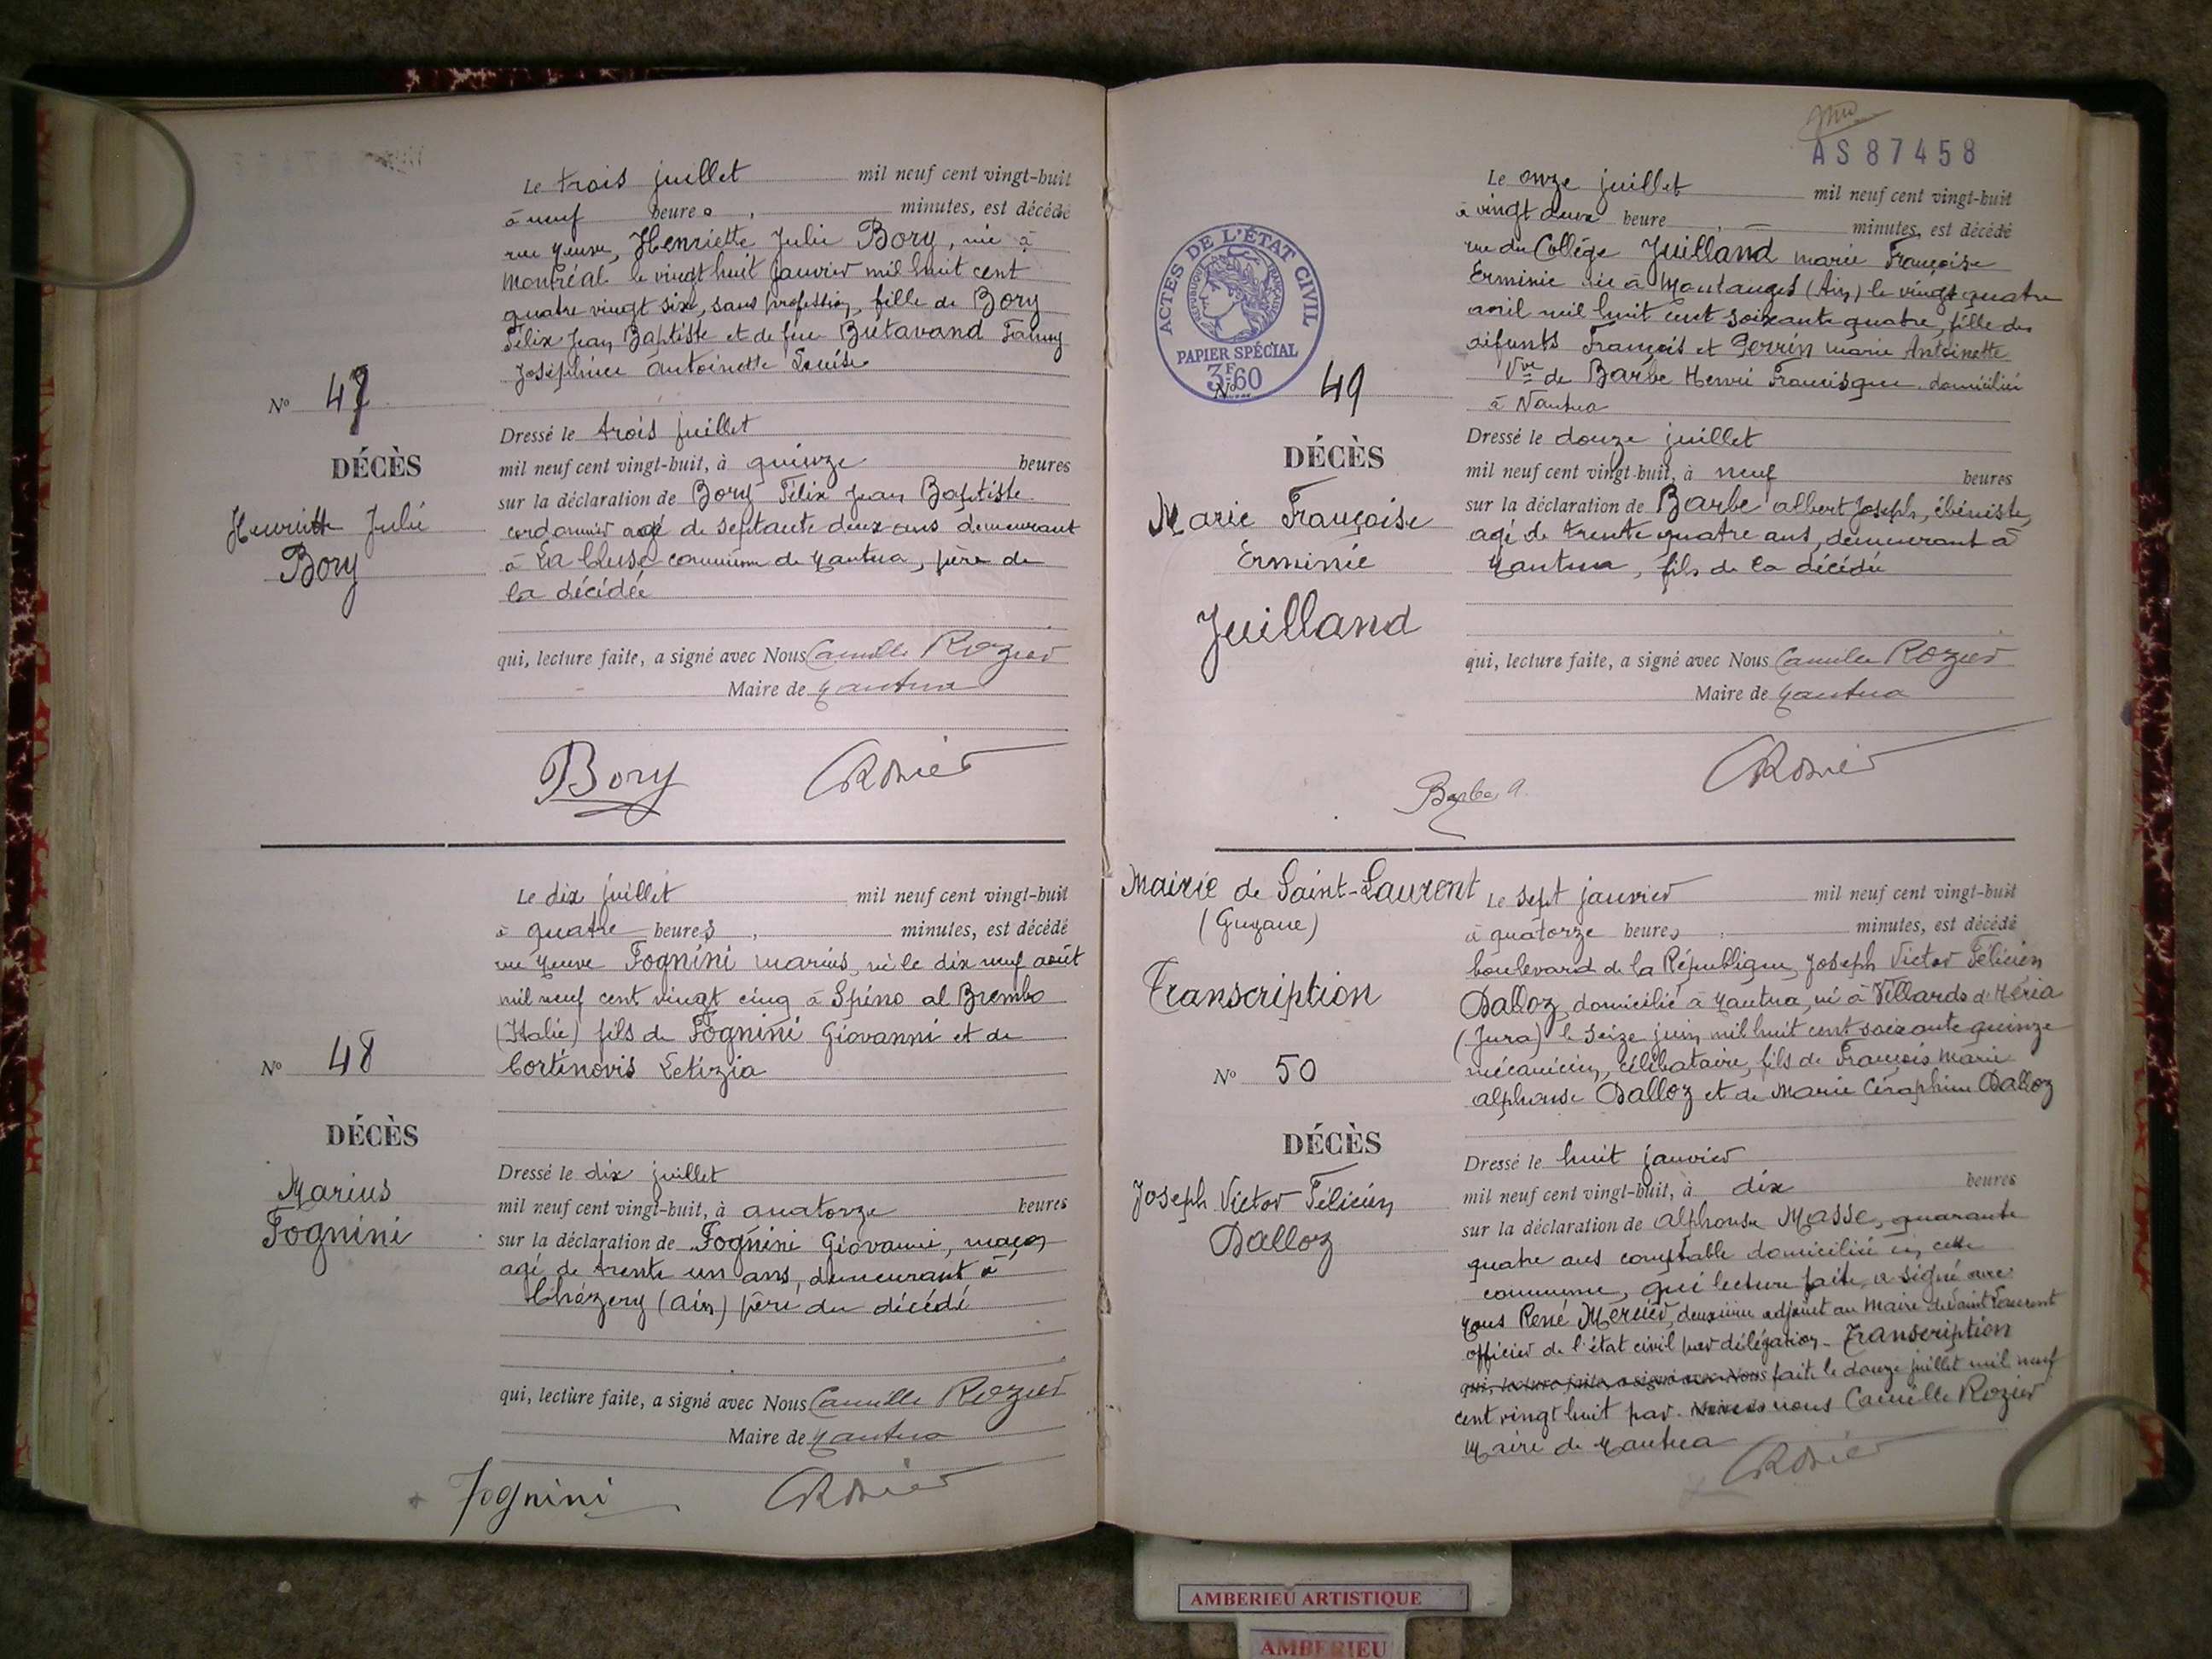 Le trois juillet mil neuf cent vingt-huit
à neuf heures, minutes, est décédé
rue Neuve, Henriette Julie Bory, née à
Montréal le vingt huit janvier mil huit cent
quatre vingt six, sans profession, fille de Bory
Félix Jean Baptiste et de feue Butavand Fanny
Joséphine Antoinette Louise
No 47
Dressé le trois juillet
DÉCÈS
mil neuf cent vingt-huit, à quinze heures
Henriette Julie
Bory
sur la déclaration de Bory Félix Jean Baptiste
cordonnier agé de septante deux ans demeurant
à La Cluse commune de Nantua, père de
la décédée
qui, lecture faite, a signé avec Nous Camille Rozier
Maire de Nantua
Bory CRozier
Le dix juillet mil neuf cent vingt-huit
à quatre heures, minutes, est décédé
rue Neuve Fognini Marius, né le dix neuf août
mil neuf cent vingt cinq à Spino al Brembo
(Italie) fils de Fognini Giovanni et de
Cortinovis Letizia
No 48
DÉCÈS
Marius
Fognini
Dressé le dix juillet
mil neuf cent vingt-huit, à quatorze heures
sur la déclaration de Fognini Giovanni, maçon
agé de trente un ans, demeurant à
Chézery (Ain) père du décédé
qui, lecture faite, a signé avec Nous Camille Rozier
Maire de Nantua
Fognini CRozier
AS 87458
ACTES DE L'ÉTAT CIVIL
RÉPUBLIQUE FRANÇAISE
PAPIER SPÉCIAL
3F.60
Le onze juillet mil neuf cent vingt-huit
à vingt deux heure, — minutes, est décédé
rue du Collége Juilland marie Françoise
Erminie née à Montanges (Ain) le vingt quatre
avril mil huit cent soixante quatre, fille des
défunts François et Perrin marie Antoinette
Vve de Barbe Henri Francisque domiciliée
à Nantua
No 49
DÉCÈS
Marie Françoise
Erminie
Juilland
Dressé le douze juillet
mil neuf cent vingt-huit, à neuf heures
sur la déclaration de Barbe albert Joseph, ébéniste,
agé de trente quatre ans, demeurant à
Nantua, fils de la décédée
qui, lecture faite, a signé avec Nous Camille Rozier
Maire de Nantua
Barbe A. CRozier
Mairie de Saint-Laurent
(Guyane)
Transcription
No 50
DÉCÈS
Joseph Victor Félicien
Dalloz
Le sept janvier mil neuf cent vingt-huit
à quatorze heures, minutes, est décédé
boulevard de la République, Joseph Victor Félicien
Dalloz, domicilié à Nantua, né à Villards d'Héria
(Jura) le seize juin mil huit cent soixante quinze
mécanicien, célibataire, fils de François Marie
alphonse Dalloz et de Marie Céraphine Dalloz
Dressé le huit janvier
mil neuf cent vingt-huit, à dix heures
sur la déclaration de Alphonse Masse, quarante
quatre ans comptable domicilié en cette
commune, qui lecture faite, a signé avec
Nous René Mercier, deuxième adjoint au Maire de Saint Laurent
officier de l'état civil par délégation - Transcription
qui, lecture faite, a signé avec Nous faite le douze juillet mil neuf
cent vingt huit par Maire de nous Camille Rozier
Maire de Nantua
CRozier
AMBERIEU ARTISTIQUE
AMBERIEU